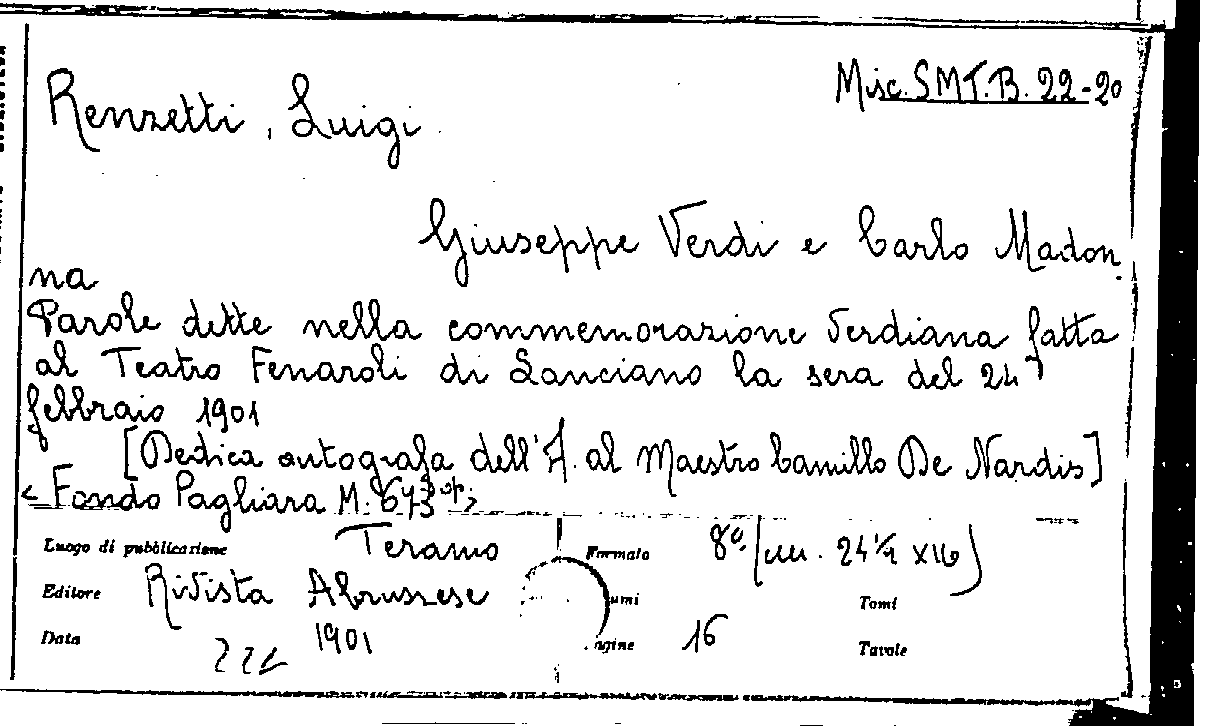 Misc. SMT.B. 22-20
Renzetti, Luigi
Giuseppe Verdi e Carlo Madon
na
Parole dette nella commemorazione Verdiana fatta
al Teatro Fenaroli di Lanciano la sera del 24
febbraio 1901
[Dedica autografa dell'A. al Maestro Camillo De Nardis]
<Fondo Pagliara M. 673 op>
Luogo di pubblicazione Teramo Formato 8º (cm. 24½ x 16)
Editore Rivista Abruzzese umi Tomi
Data 1901 agine 16 Tavole